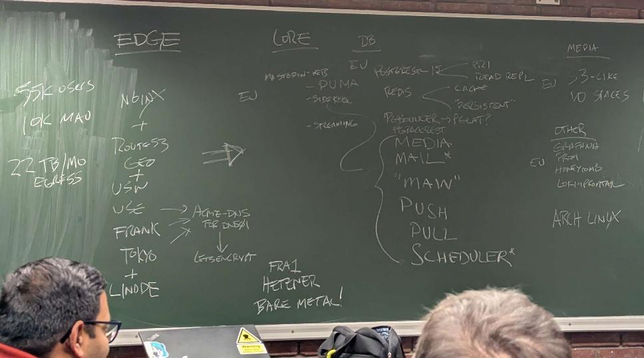 EDGE
55K USERS
10K MAU
22 TB/MO
EGRESS
NGINX
+
ROUTE53
GEO
+
USW
USE
FRANK
TOKYO
+
LINODE
ACME-DNS
FOR DNS01
LETSENCRYPT
CORE
EU
MASTODON-WEB
- PUMA
- SIDEKIQ
- STREAMING
FRA1
HETZNER
BARE METAL!
DB
EU
POSTGRESQL 15
PRI
READ REPL
REDIS
CACHE
"PERSISTENT"
PGBOUNCER → PGCAT?
MEDIA
MAIL*
"MAW"
PUSH
PULL
SCHEDULER*
MEDIA
EU
S3-LIKE
DO SPACES
OTHER
EU
GRAFANA
PROM
HONEYCOMB
LOKI+PROMTAIL
ARCH LINUX